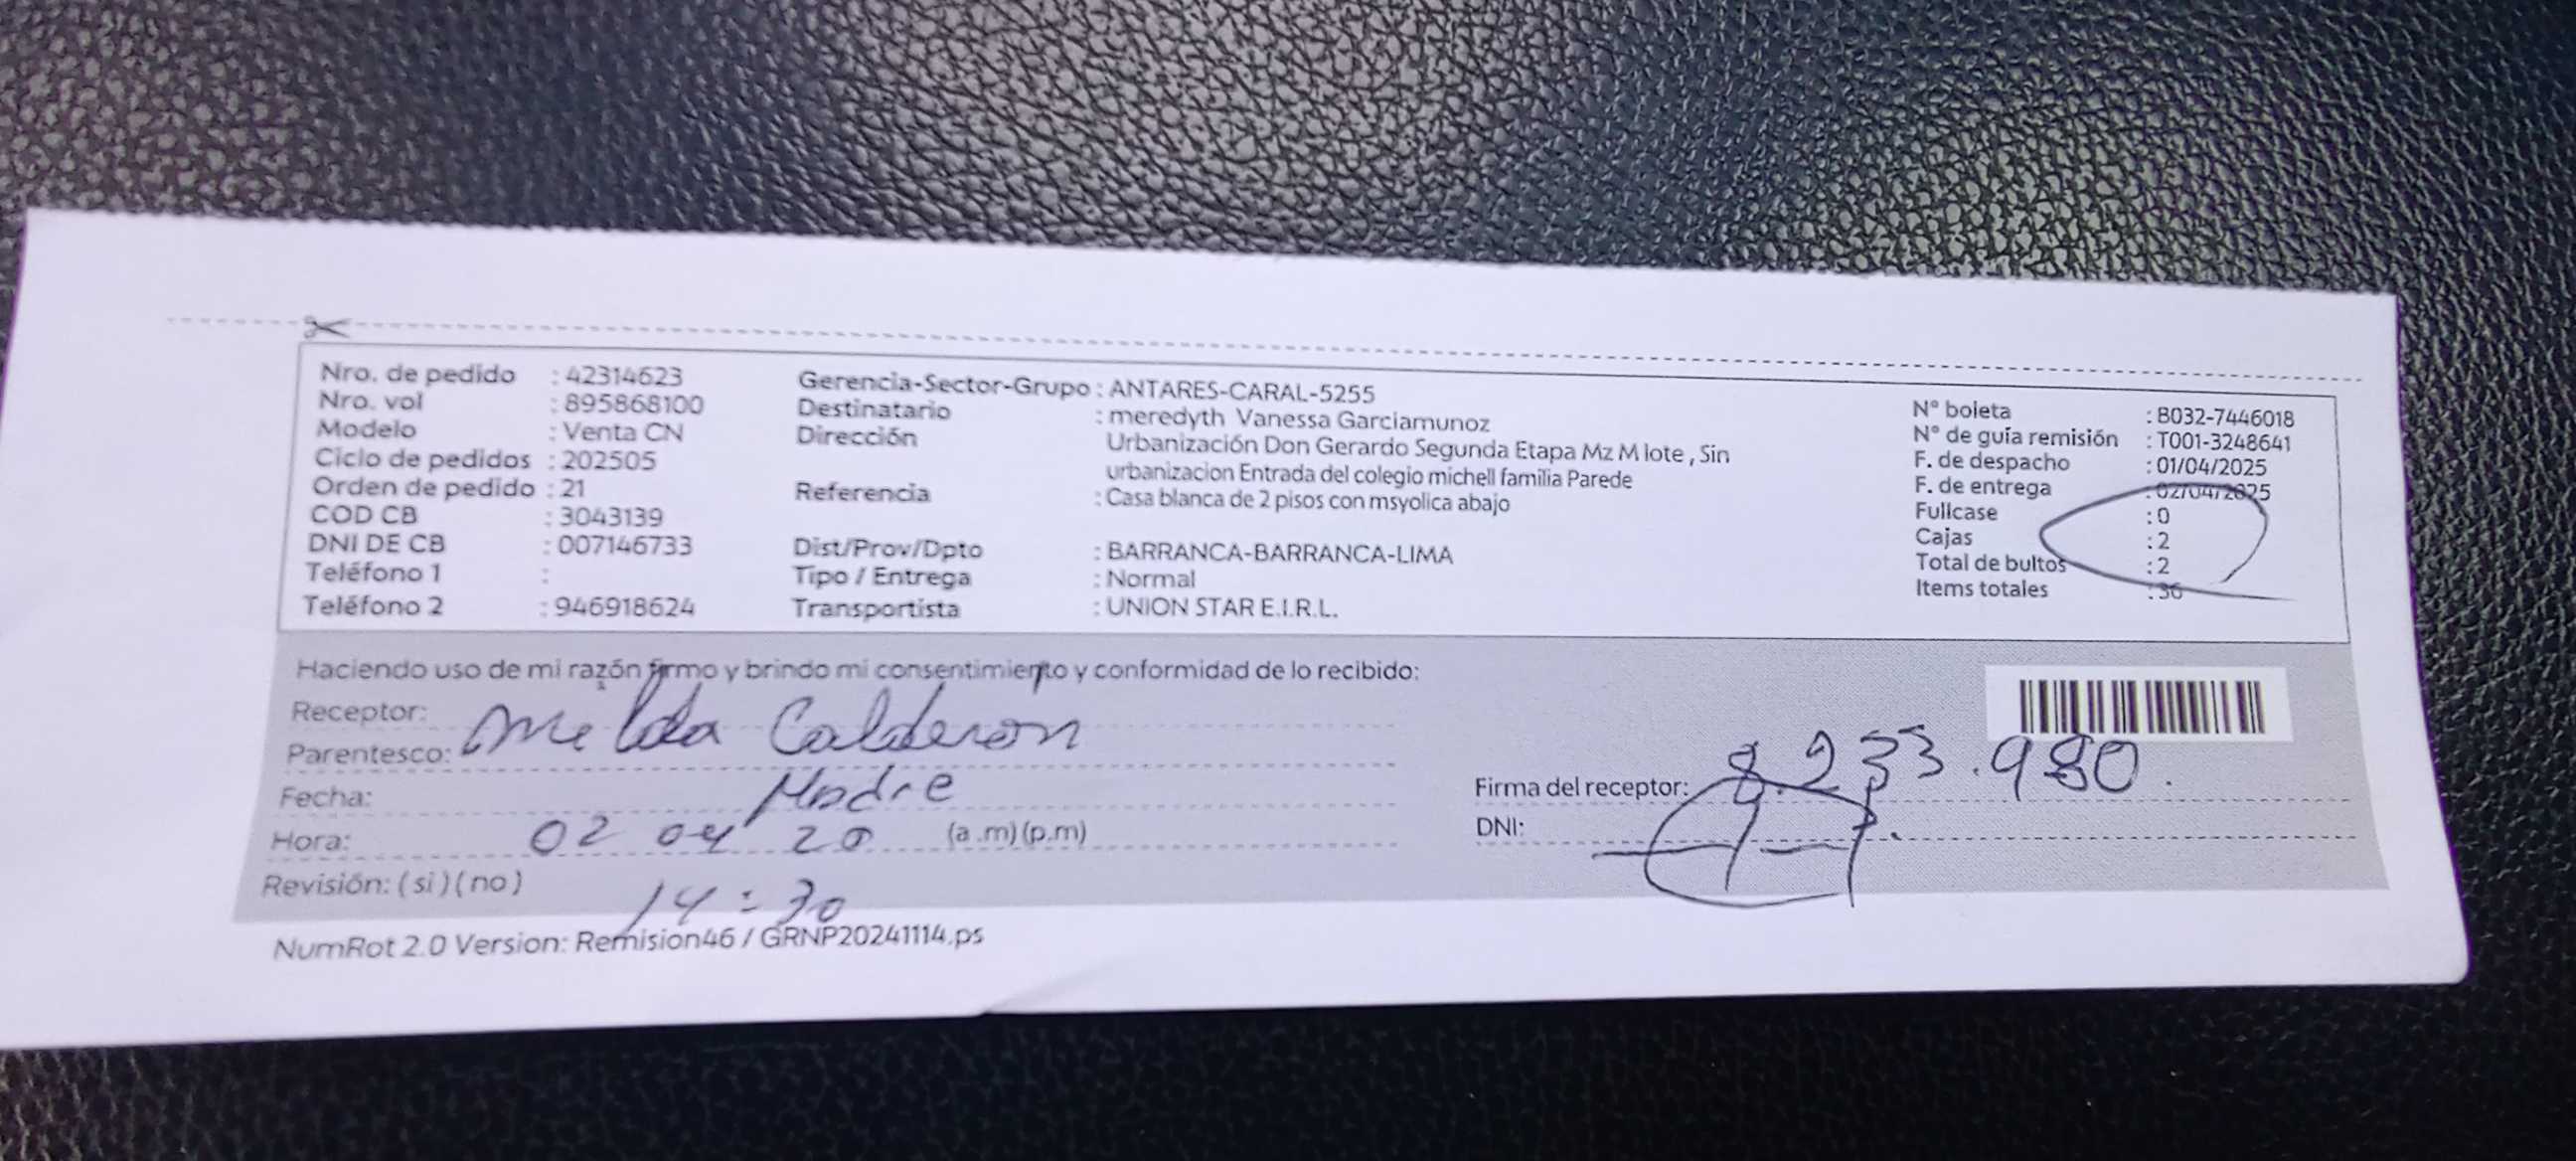 Nro. de pedido : 42314623
Nro. vol : 895868100
Modelo : Venta CN
Ciclo de pedidos : 202505
Orden de pedido : 21
COD CB : 3043139
DNI DE CB : 007146733
Teléfono 1 :
Teléfono 2 : 946918624
Gerencia-Sector-Grupo : ANTARES-CARAL-5255
Destinatario : meredyth Vanessa Garciamunoz
Dirección Urbanización Don Gerardo Segunda Etapa Mz M lote , Sin
urbanizacion Entrada del colegio michell familia Parede
Referencia : Casa blanca de 2 pisos con msyolica abajo
Dist/Prov/Dpto : BARRANCA-BARRANCA-LIMA
Tipo / Entrega : Normal
Transportista : UNION STAR E.I.R.L.
N° boleta : B032-7446018
N° de guía remisión : T001-3248641
F. de despacho : 01/04/2025
F. de entrega : 02/04/2025
Fullcase : 0
Cajas : 2
Total de bultos : 2
Items totales : 36
Haciendo uso de mi razón firmo y brindo mi consentimiento y conformidad de lo recibido:
Receptor:
Parentesco: Calderon
Fecha: Madre
Hora: 02 04 20 (a .m) (p.m)
Revisión: ( si ) ( no )
14:30
Firma del receptor: 8.233.980.
DNI:
NumRot 2.0 Version: Remision46 / GRNP20241114.ps